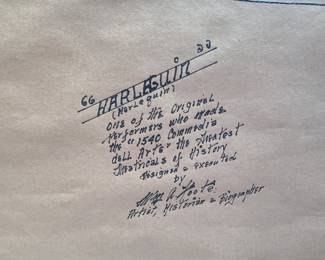 66 HARLEQUIN 33
(Harlequin)
one of the Original
Performers who made
the "1540 Commedia
dell Arte" the Greatest
Theatricals of History
Designed & Executed
by
Artist, Historian & Biographer